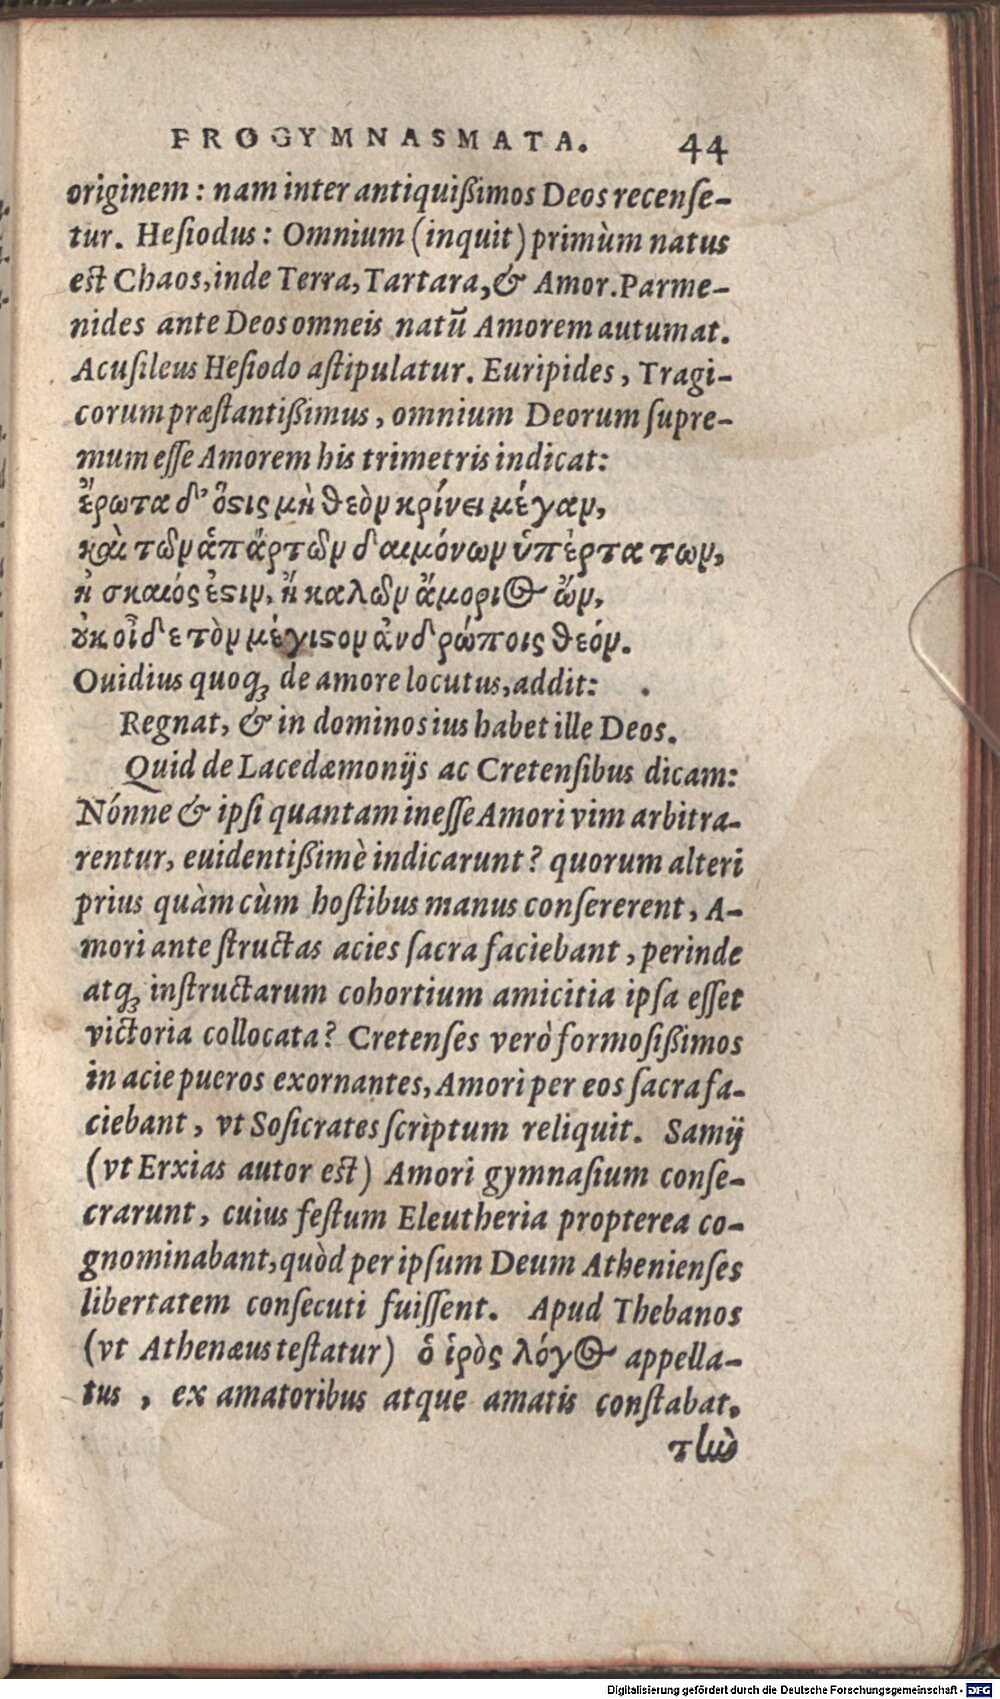 PROGYMNASMATA. 44
originem: nam inter antiquißimos Deos recenſe-
tur. Heſiodus: Omnium (inquit) primùm natus
est Chaos, inde Terra, Tartara, & Amor. Parme-
nides ante Deos omneis natū Amorem autumat.
Acuſileus Heſiodo aſtipulatur. Euripides, Tragi-
corum præſtantißimus, omnium Deorum ſupre-
mum eſſe Amorem his trimetris indicat:
ἔρωτα δ’ ὅϛις μὴ θεὸν κρίνει μέγαν,
καὶ τῶν ἁπάρτων δαιμόνων ὑπέρτατων,
ἠ σκαιός ἐϛιν, ἢ καλῶν ἄμοριος ὤν,
ȣκ οἶδε τὸν μέγιϛον ἀνδρώποις θεόν.
Ouidius quoqꝫ de amore locutus, addit:
Regnat, & in dominos ius habet ille Deos.
Quid de Lacedæmonijs ac Cretenſibus dicam:
Nónne & ipſi quantam ineſſe Amori vim arbitra-
rentur, euidentißimè indicarunt? quorum alteri
prius quàm cùm hoſtibus manus conſererent, A-
mori ante ſtructas acies ſacra faciebant, perinde
atqꝫ inſtructarum cohortium amicitia ipſa eſſet
victoria collocata? Cretenſes verò formoſißimos
in acie pueros exornantes, Amori per eos ſacra fa-
ciebant, vt Soſicrates ſcrìptum reliquit. Samij
(vt Erxias autor est) Amori gymnaſium conſe-
crarunt, cuius feſtum Eleutheria propterea co-
gnominabant, quòd per ipſum Deum Athenienſes
libertatem conſecuti fuiſſent. Apud Thebanos
(vt Athenæus teſtatur) ὁ ἱρὸς λόγος appella-
tus, ex amatoribus atque amatis conſtabat,
τὼ
Digitalisierung gefördert durch die Deutsche Forschungsgemeinschaft - DFG